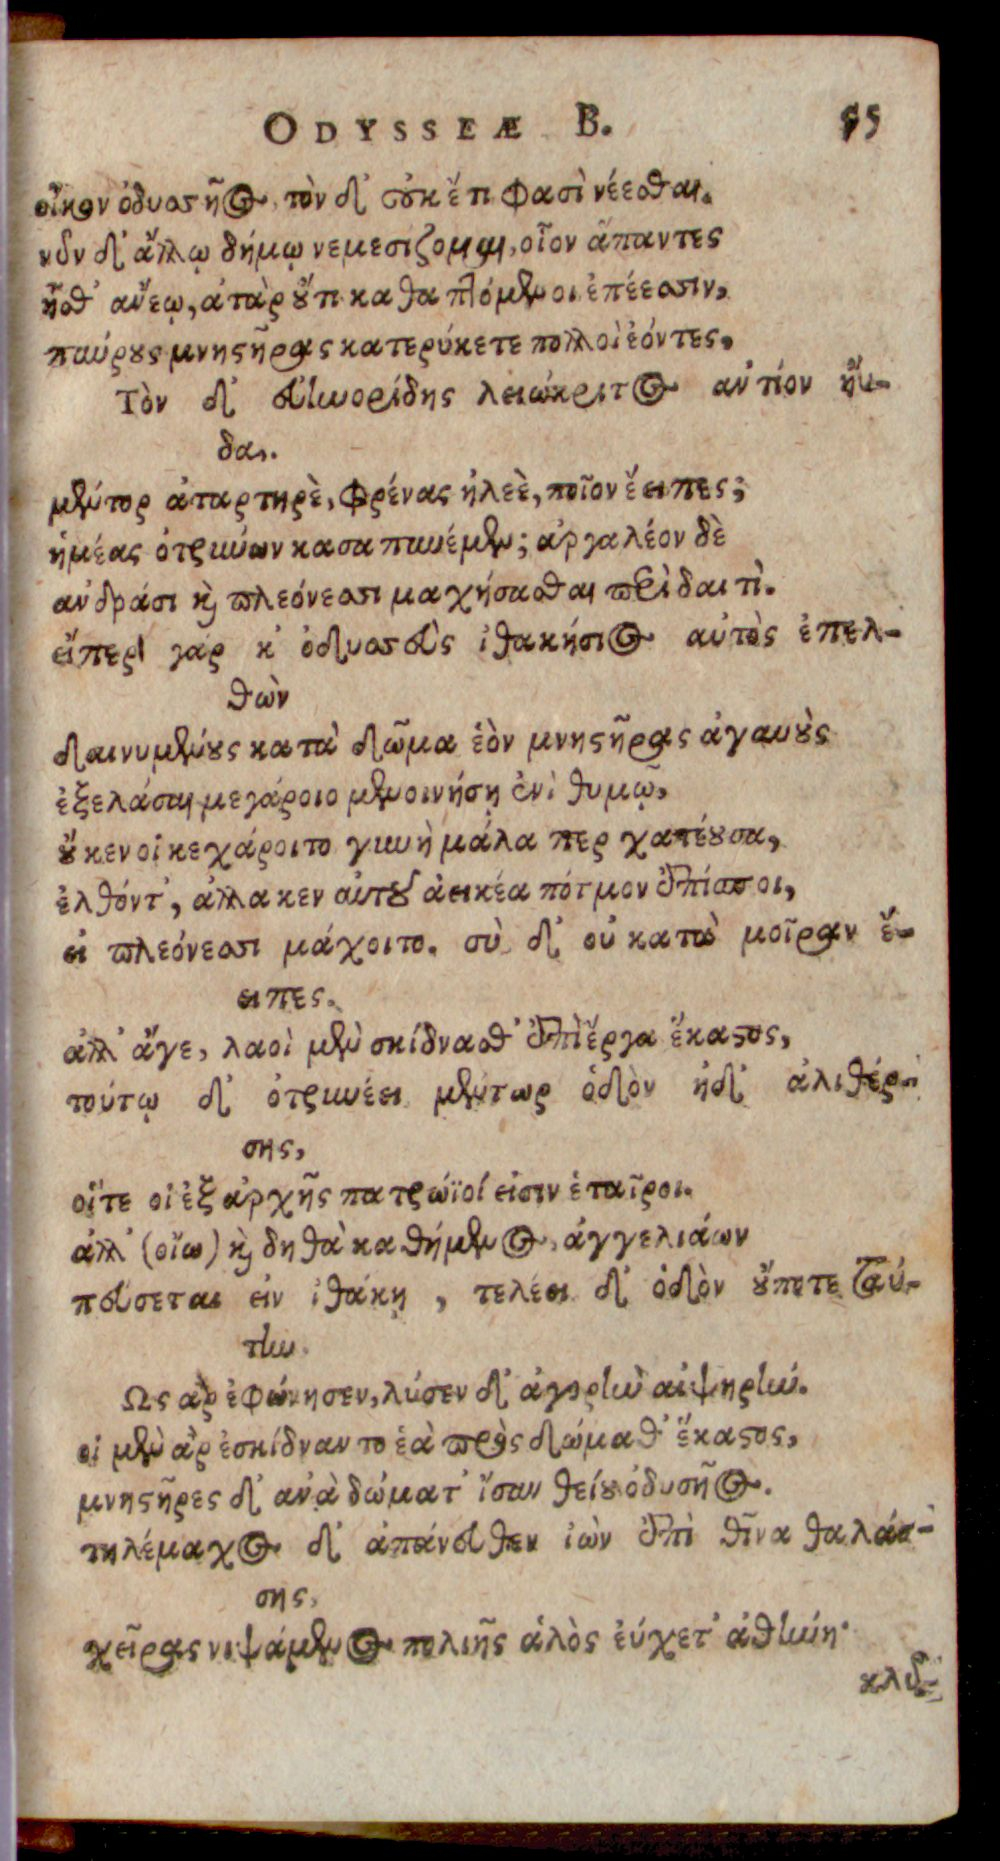 ODYSSEÆ B. 55
οἶκον ὀδυσσῆος, τὸν δ' οὐκ ἔτι φασὶ νέεσθαι.
νῦν δ' ἄλλῳ δήμῳ νεμεσίζομαι, οἷον ἅπαντες
ἧσθ' ἄνεῳ, ἀτὰρ οὔτι καθαπτόμενοι ἐπέεσσιν,
παύρους μνηστῆρας κατερύκετε πολλοὶ ἐόντες.
Τὸν δ' εὐηνορίδης λειώκριτος ἀντίον ηὔ-
δα.
μέντορ ἀταρτηρὲ, φρένας ἠλεὲ, ποῖον ἔειπες;
ἡμέας ὀτρυνέων καταπαυέμεν; ἀργαλέον δὲ
ἀνδράσι καὶ πλεόνεσσι μαχήσασθαι περὶ δαιτὶ.
εἴπερ γάρ κ' ὀδυσσεὺς ἰθακήσιος αὐτὸς ἐπελ-
θὼν
δαινυμένους κατὰ δῶμα ἑὸν μνηστῆρας ἀγαυοὺς
ἐξελάσαι μεγάροιο μενοινήσῃ ἐνὶ θυμῷ,
οὔ κεν οἱ κεχάροιτο γυνὴ μάλα περ χατέουσα,
ἐλθόντ', ἀλλά κεν αὐτοῦ ἀεικέα πότμον ἐπίσποι,
εἰ πλεόνεσσι μάχοιτο. σὺ δ' οὐ κατὰ μοῖραν ἔ-
ειπες.
ἀλλ' ἄγε, λαοὶ μὲν σκίδνασθ' ἐπὶ ἔργα ἕκαστος,
τούτῳ δ' ὀτρυνέει μέντωρ ὁδὸν ἠδ' ἁλιθέρ-
σης,
οἵτε οἱ ἐξ ἀρχῆς πατρώϊοί εἰσιν ἑταῖροι.
ἀλλ' (οἴω) καὶ δηθὰ καθήμενος, ἀγγελιάων
πεύσεται εἰν ἰθάκῃ, τελέει δ' ὁδὸν οὔποτε ταύ-
την.
Ως ἄρ ἐφώνησεν, λύσεν δ' ἀγορὴν αἰψηρήν.
οἱ μὲν ἄρ ἐσκίδναντο ἑὰ πρὸς δώμαθ' ἕκαστος,
μνηστῆρες δ' ἀνὰ δώματ' ἴσαν θείου ὀδυσῆος.
τηλέμαχος δ' ἀπάνευθεν ἰὼν ἐπὶ θῖνα θαλάσ-
σης,
χεῖρας νιψάμενος πολιῆς ἁλὸς εὔχετ' ἀθήνῃ·
κλῦ-